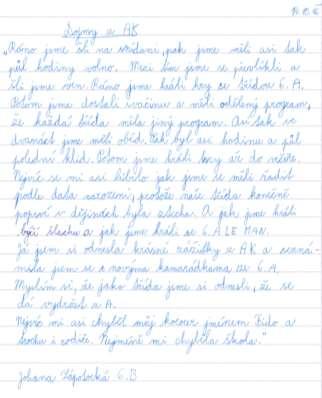 Dojmy z AK
„Ráno jsme šli na snídani, pak jsme měli asi tak
půl hodiny volno. Mezi tím jsme se převlékli a
šli jsme ven. Ráno jsme hráli hry se třídou 6.A.
Potom jsme dostali svačinu a měli oddělený program,
že každá třída měla jiný program. Asi tak ve
dvanáct jsme měli oběd. Pak byl asi hodinu a půl
polední klid. Potom jsme hráli hry až do večeře.
Nejvíc se mi asi líbilo jak jsme se měli řadit
podle data narození, protože naše třída konečně
poprvé v dějinách byla zticha. A pak jsme hráli
boží šlachu a jak jsme hráli se 6.A LE MAN.
Já jsem si odnesla krásné zážitky z AK a sezná-
mila jsem se s novýma kamarádkama ze 6.A.
Myslím si, že jako třída jsme si odnesli, že se
dá vydržet s A.
Nejvíc mi asi chyběl můj kocour jménem Fido a
trochu i rodiče. Nejméně mi chyběla škola."
Johana 6.B